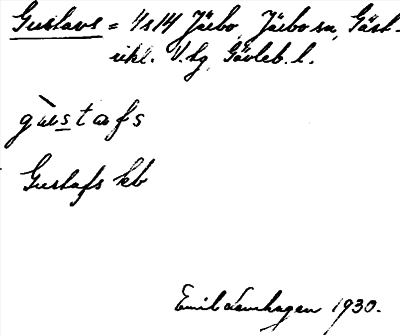 Gustavs = 1/8 14 Järbo, Järbo sn, Gäst-
rikl. V. tg, Gävleb. l.
gùstafs
Gustafs kb
Emil Lennhagen 1930.